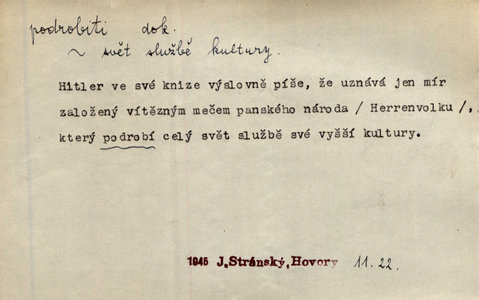 podrobiti dok.
~ svět službě kultury.
Hitler ve své knize výslovně píše, že uznává jen mír
založený vítězným mečem panského národa / Herrenvolku /,
který podrobí celý svět službě své vyšší kultury.
1945 J.Stránský,Hovory 11.22.